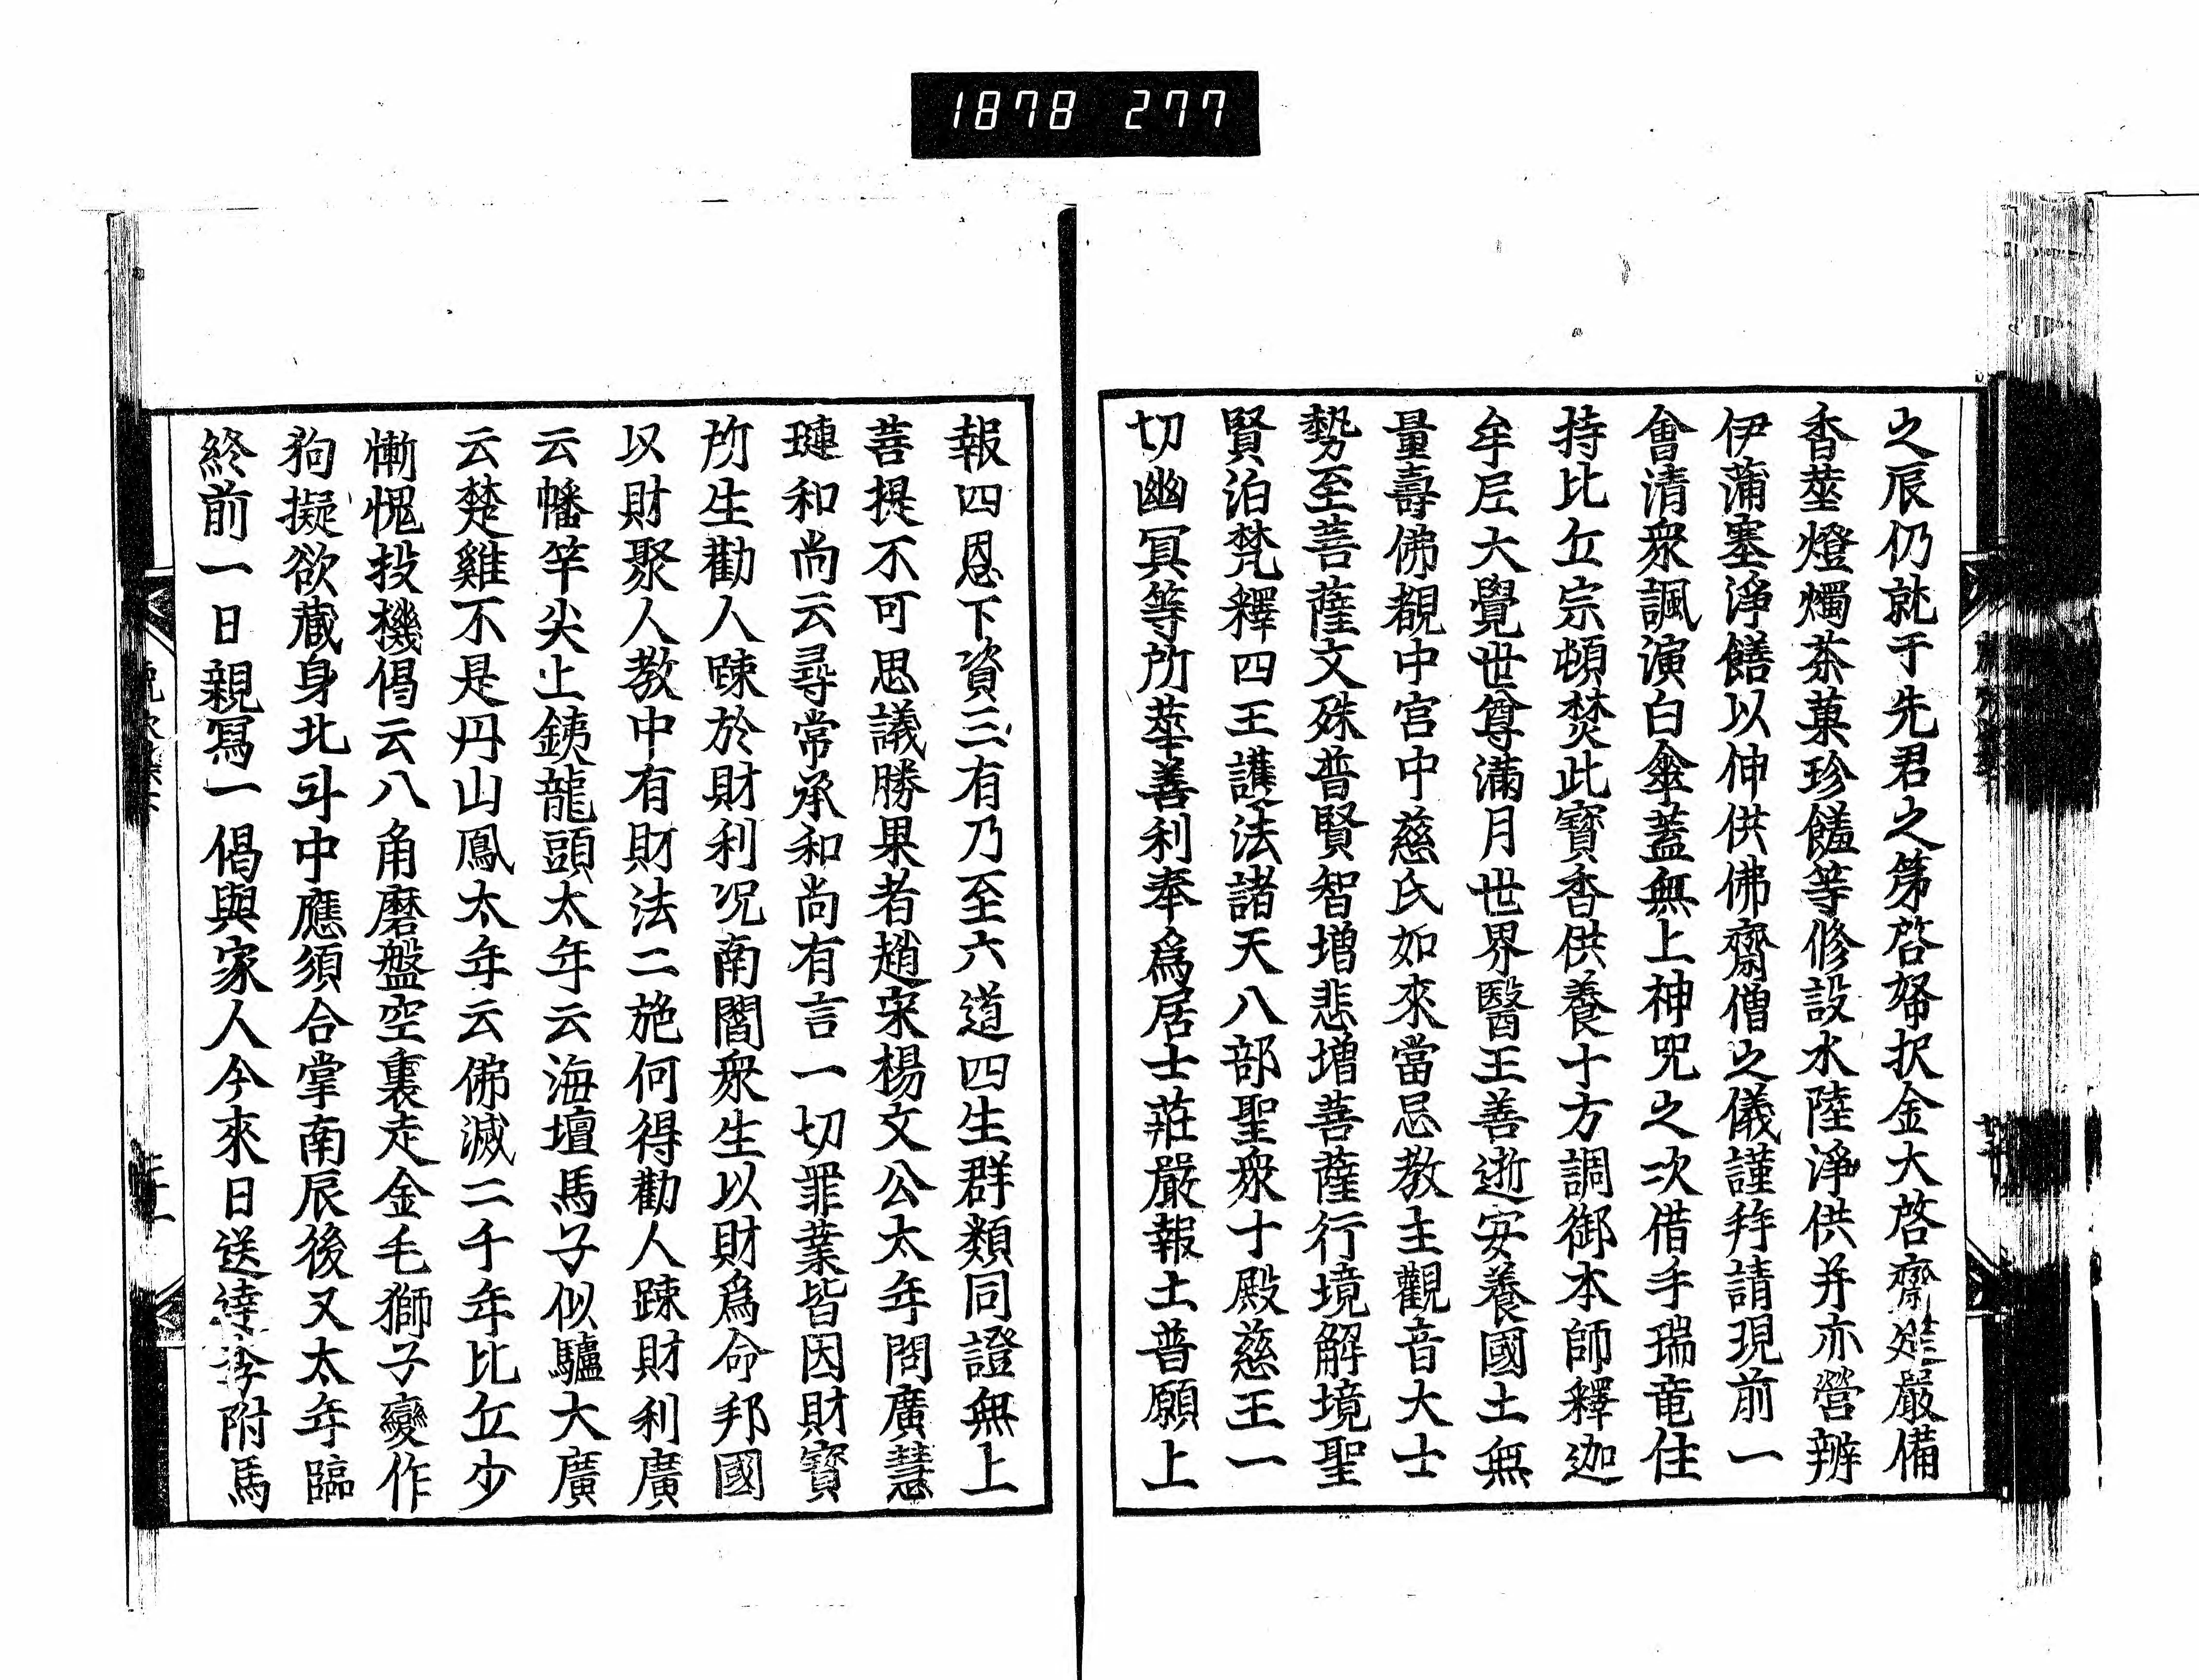 1878 277
之辰仍就于先君之第啓帑択金大啓齋筵嚴備
香蕐燈燭茶菓珍饈等修設水陸淨供并亦營辨
伊蒲塞淨饍以伸供佛齋僧之儀謹拜請現前一
會清衆諷演白傘蓋無上神咒之次借手瑞竜住
持比丘宗頓焚此寶香供養十方調御本師釋迦
牟尼大覺世尊滿月世界醫王善逝安養國土無
量壽佛覩中宮中慈氏如來當忌教主觀音大士
勢至菩薩文殊普賢智增悲增菩薩行境解境聖
賢洎梵釋四王護法諸天八部聖衆十殿慈王一
切幽冥等所蕐善利奉爲居士莊嚴報土普願上
報四恩下資三有乃至六道四生群類同證無上
菩提不可思議勝果者趙宋楊文公太年問廣慧
璉和尚云尋常承和尚有言一切罪業皆因財寶
所生勸人踈於財利况南閻衆生以財爲命邦國
以財聚人教中有財法二施何得勸人踈財利廣
云幡竿尖上銕龍頭太年云海壇馬子似驢大廣
云楚雞不是丹山鳳太年云佛滅二千年比丘少
慚愧投機偈云八角磨盤空裏走金毛獅子變作
狗擬欲藏身北斗中應須合掌南辰後又太年臨
終前一日親冩一偈與家人今來日送達李附馬